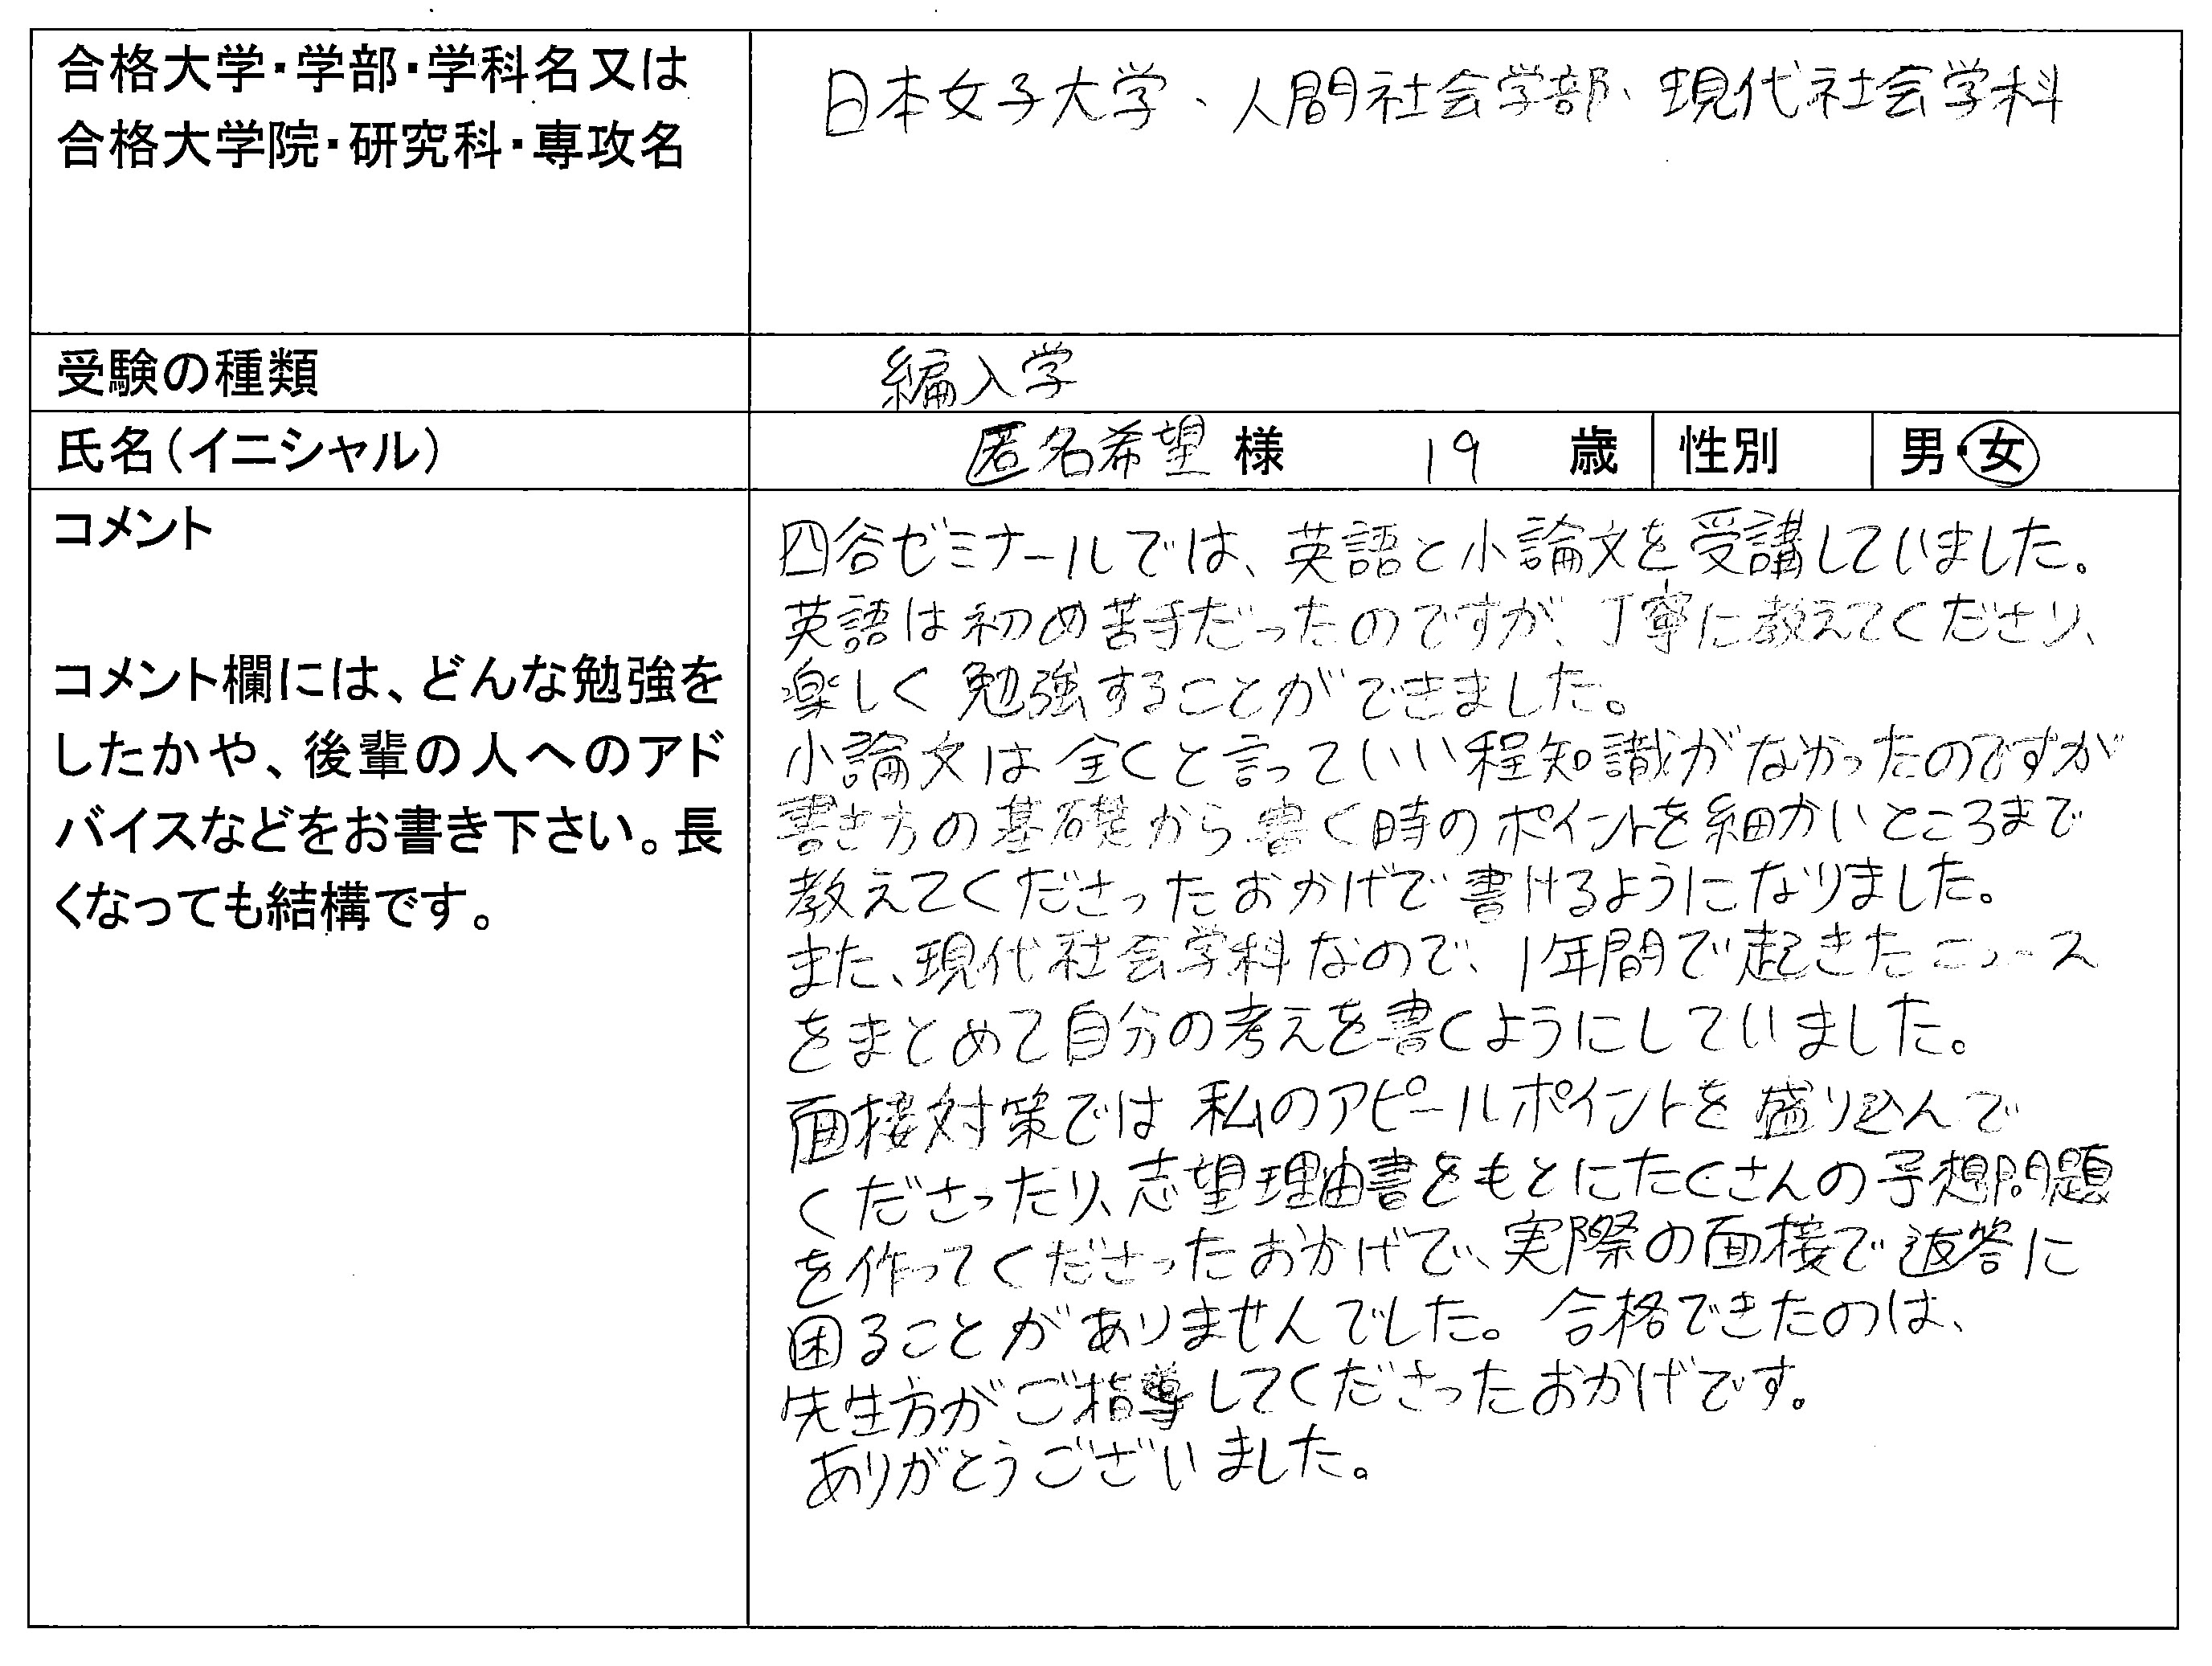 合格大学・学部・学科名又は
合格大学院・研究科・専攻名
日本女子大学、人間社会学部、現代社会学科
受験の種類
編入学
氏名(イニシャル)
匿名希望 様 19 歳 性別 男・女
コメント
コメント欄には、どんな勉強を
したかや、後輩の人へのアド
バイスなどをお書き下さい。長
くなっても結構です。
四谷ゼミナールでは、英語と小論文を受講していました。
英語は初め苦手だったのですが、丁寧に教えてくださり、
楽しく勉強することができました。
小論文は全くと言っていい程知識がなかったのですが
書き方の基礎から書く時のポイントを細かいところまで
教えてくださったおかげで書けるようになりました。
また、現代社会学科なので、1年間で起きたニュース
をまとめて自分の考えを書くようにしていました。
面接対策では私のアピールポイントを盛り込んで
くださったり、志望理由書をもとにたくさんの予想問題
を作ってくださったおかげで、実際の面接で返答に
困ることがありませんでした。合格できたのは、
先生方がご指導してくださったおかげです。
ありがとうございました。